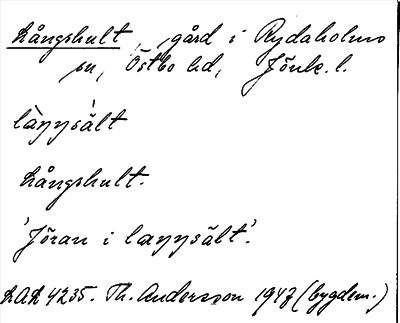 Långshult, gård i Rydaholms
sn, Östbo hd, Jönk. l.
làŋŋsált
Långshult.
'Jöran i laŋŋsält'.
LAL 4235. Th. Andersson 1947 (bygdem.)